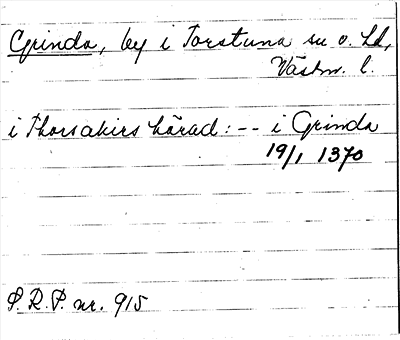 Grinda, by i Torstuna sn o. hd,
Västm. l.
i Thorsakirs härad: -- i Grinda
19/1 1370
S. R. P. nr. 915